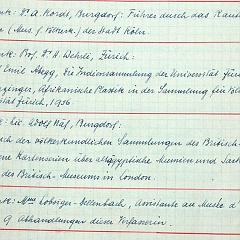 nk: Dr. A. Kordt, Burgdorf: Führer durch das Raut
(Mus. f. Völkerk.) der Stadt Köln.
nk: Prof. Dr. H. Wehrli, Zürich:
Emil Abegg, die Indiensammlung der Universität Züri
zinger, Afrikanische Plastik in der Sammlung für Völ
tät Zürich, 1936
nk: Lic. Adolf Küf, Burgdorf:
ch der völkerkundlichen Sammlungen des British-
ne Kartenserien über altägyptische Mumien und Sark
des British-Museums in London.
nk: Mme Lobsiger-Dellenbach, Assistante au Musée d'
9 Abhandlungen dieser Verfasserin